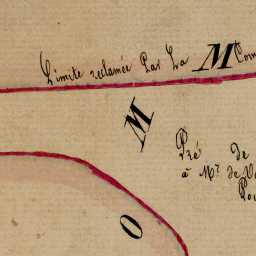 Limite reclamée Par La Com
M
M
Pré de
à Mr. de V
O